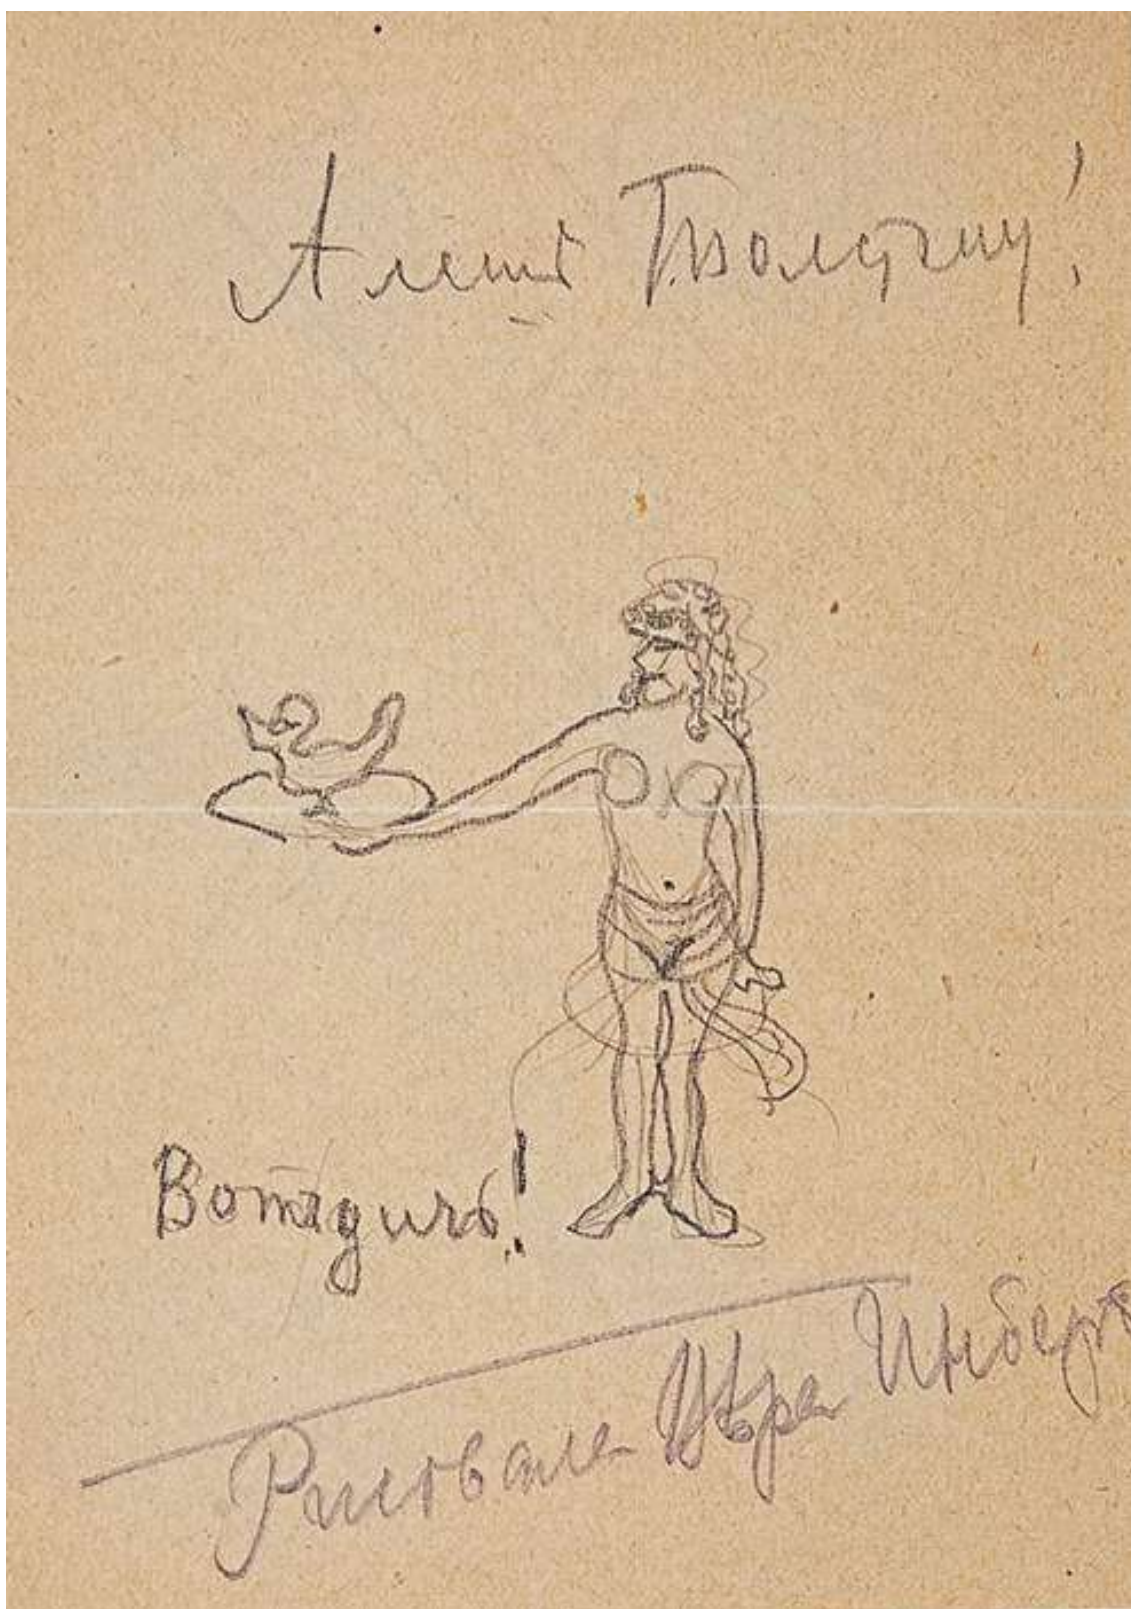 Алешѣ Толстому!
Вотъ дичь!
Рисовала Вѣра Инберъ